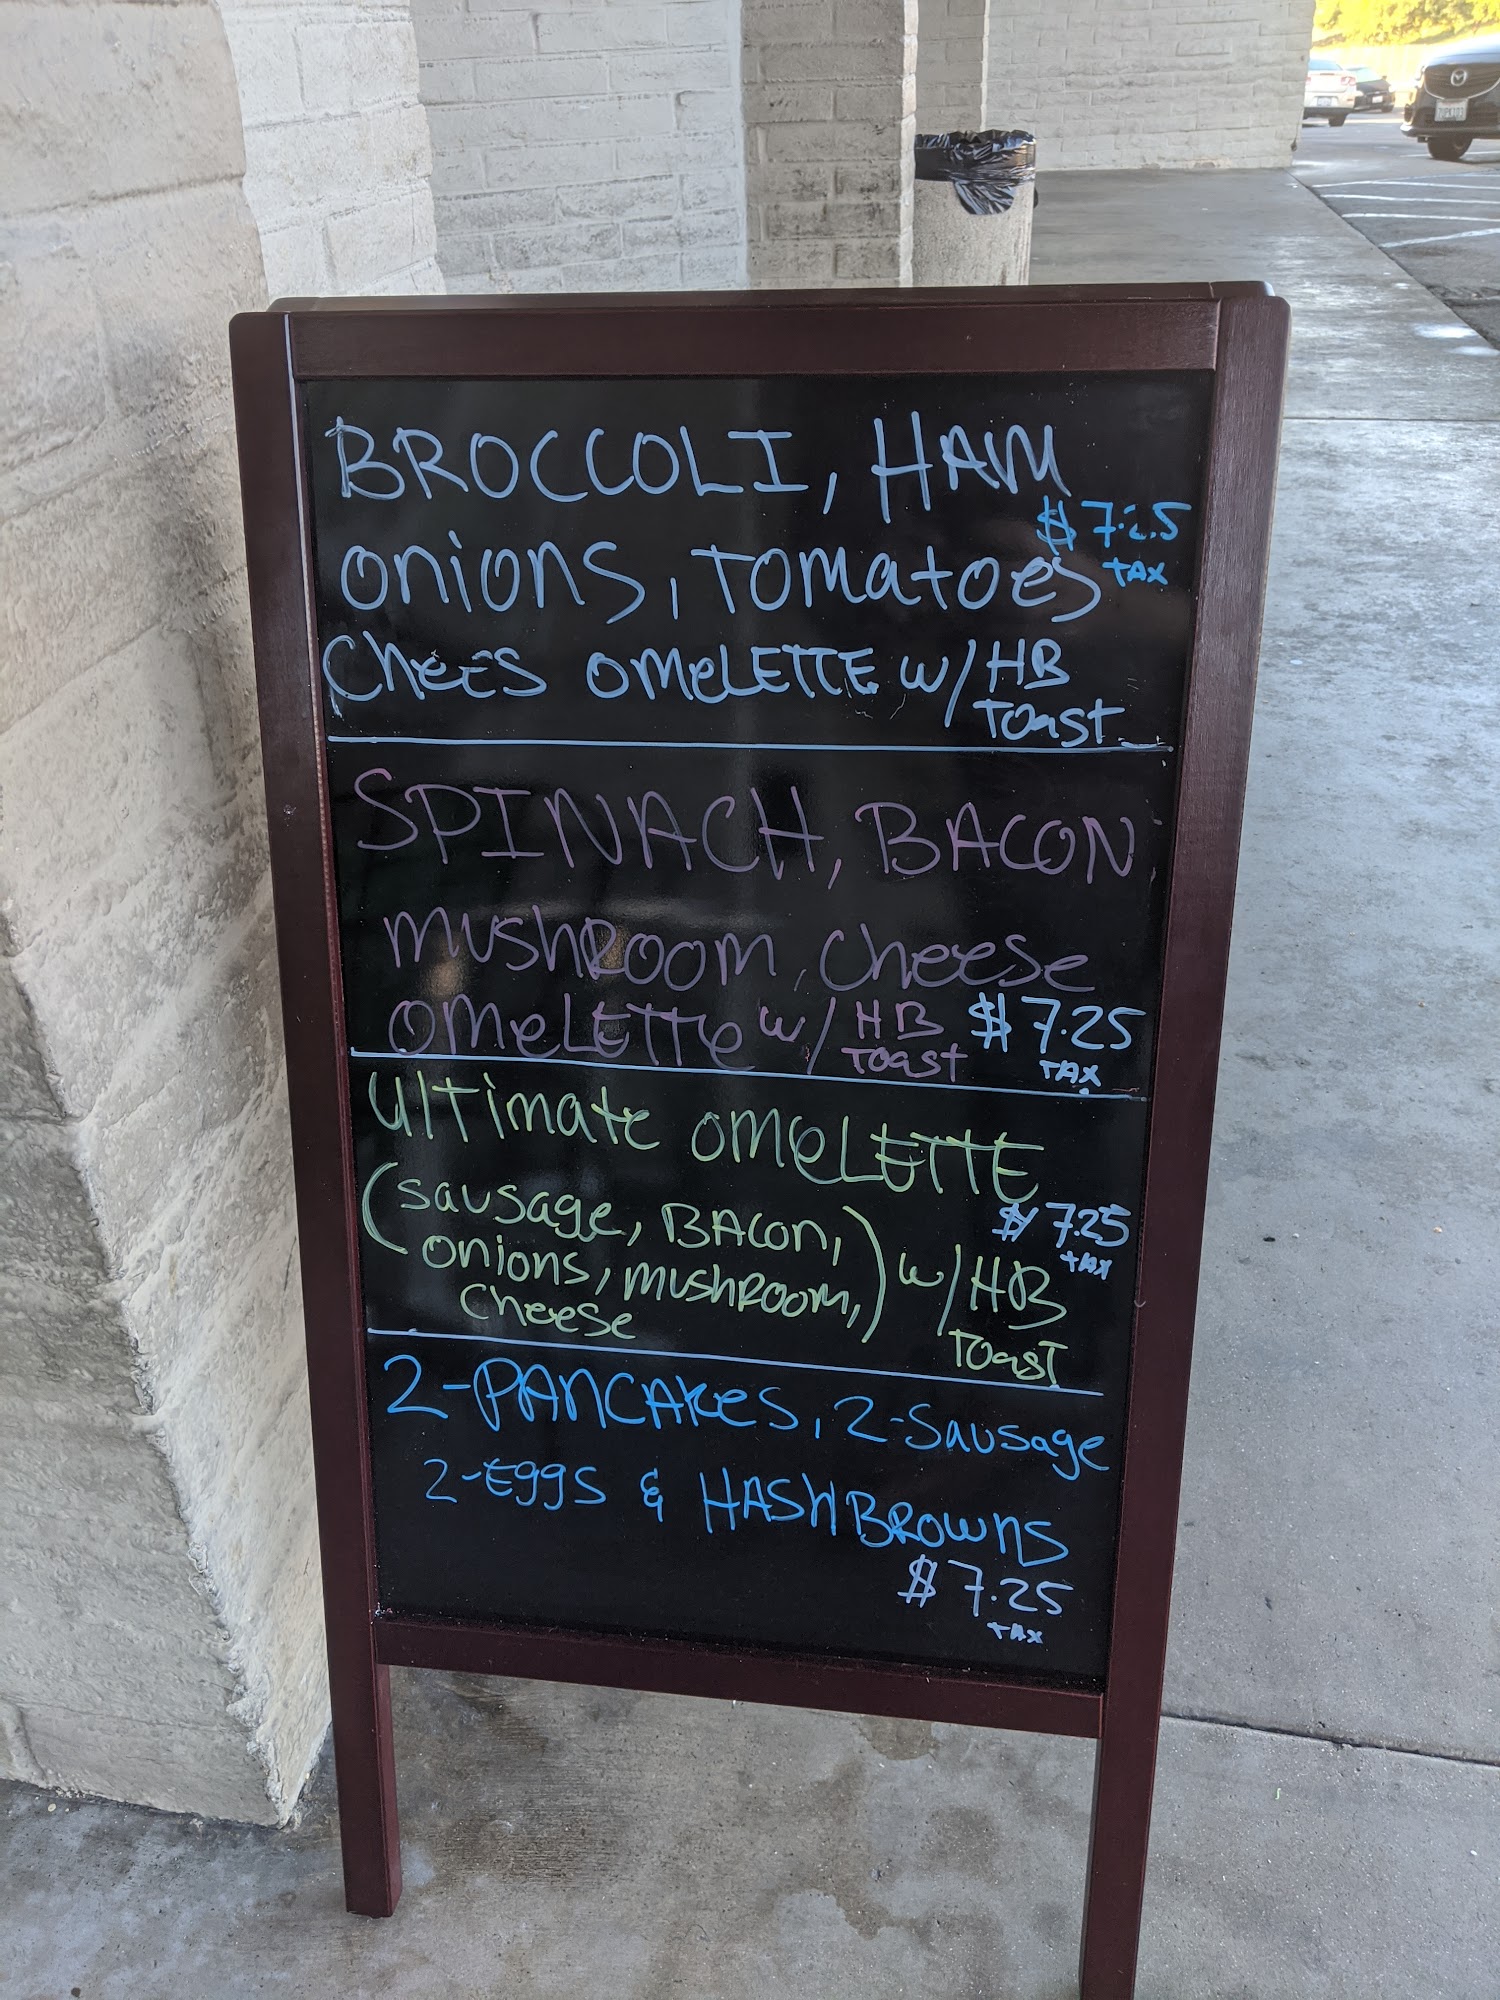 BROCCOLI, HAM
$7.25
onions, Tomatoes TAX
Chees omeLETTE w/ HB
Toast
SPINACH, BACON
mushRoom, Cheese
omeLETTe w/ HB $7.25
Toast TAX
ulTimate omeLETTE
(sausage, BACon, $7.25
onions, mushRoom,) w/ HB tax
Cheese Toast
2-PANCAKes, 2-Sausage
2-Eggs & HASHBROwns
$7.25
TAX